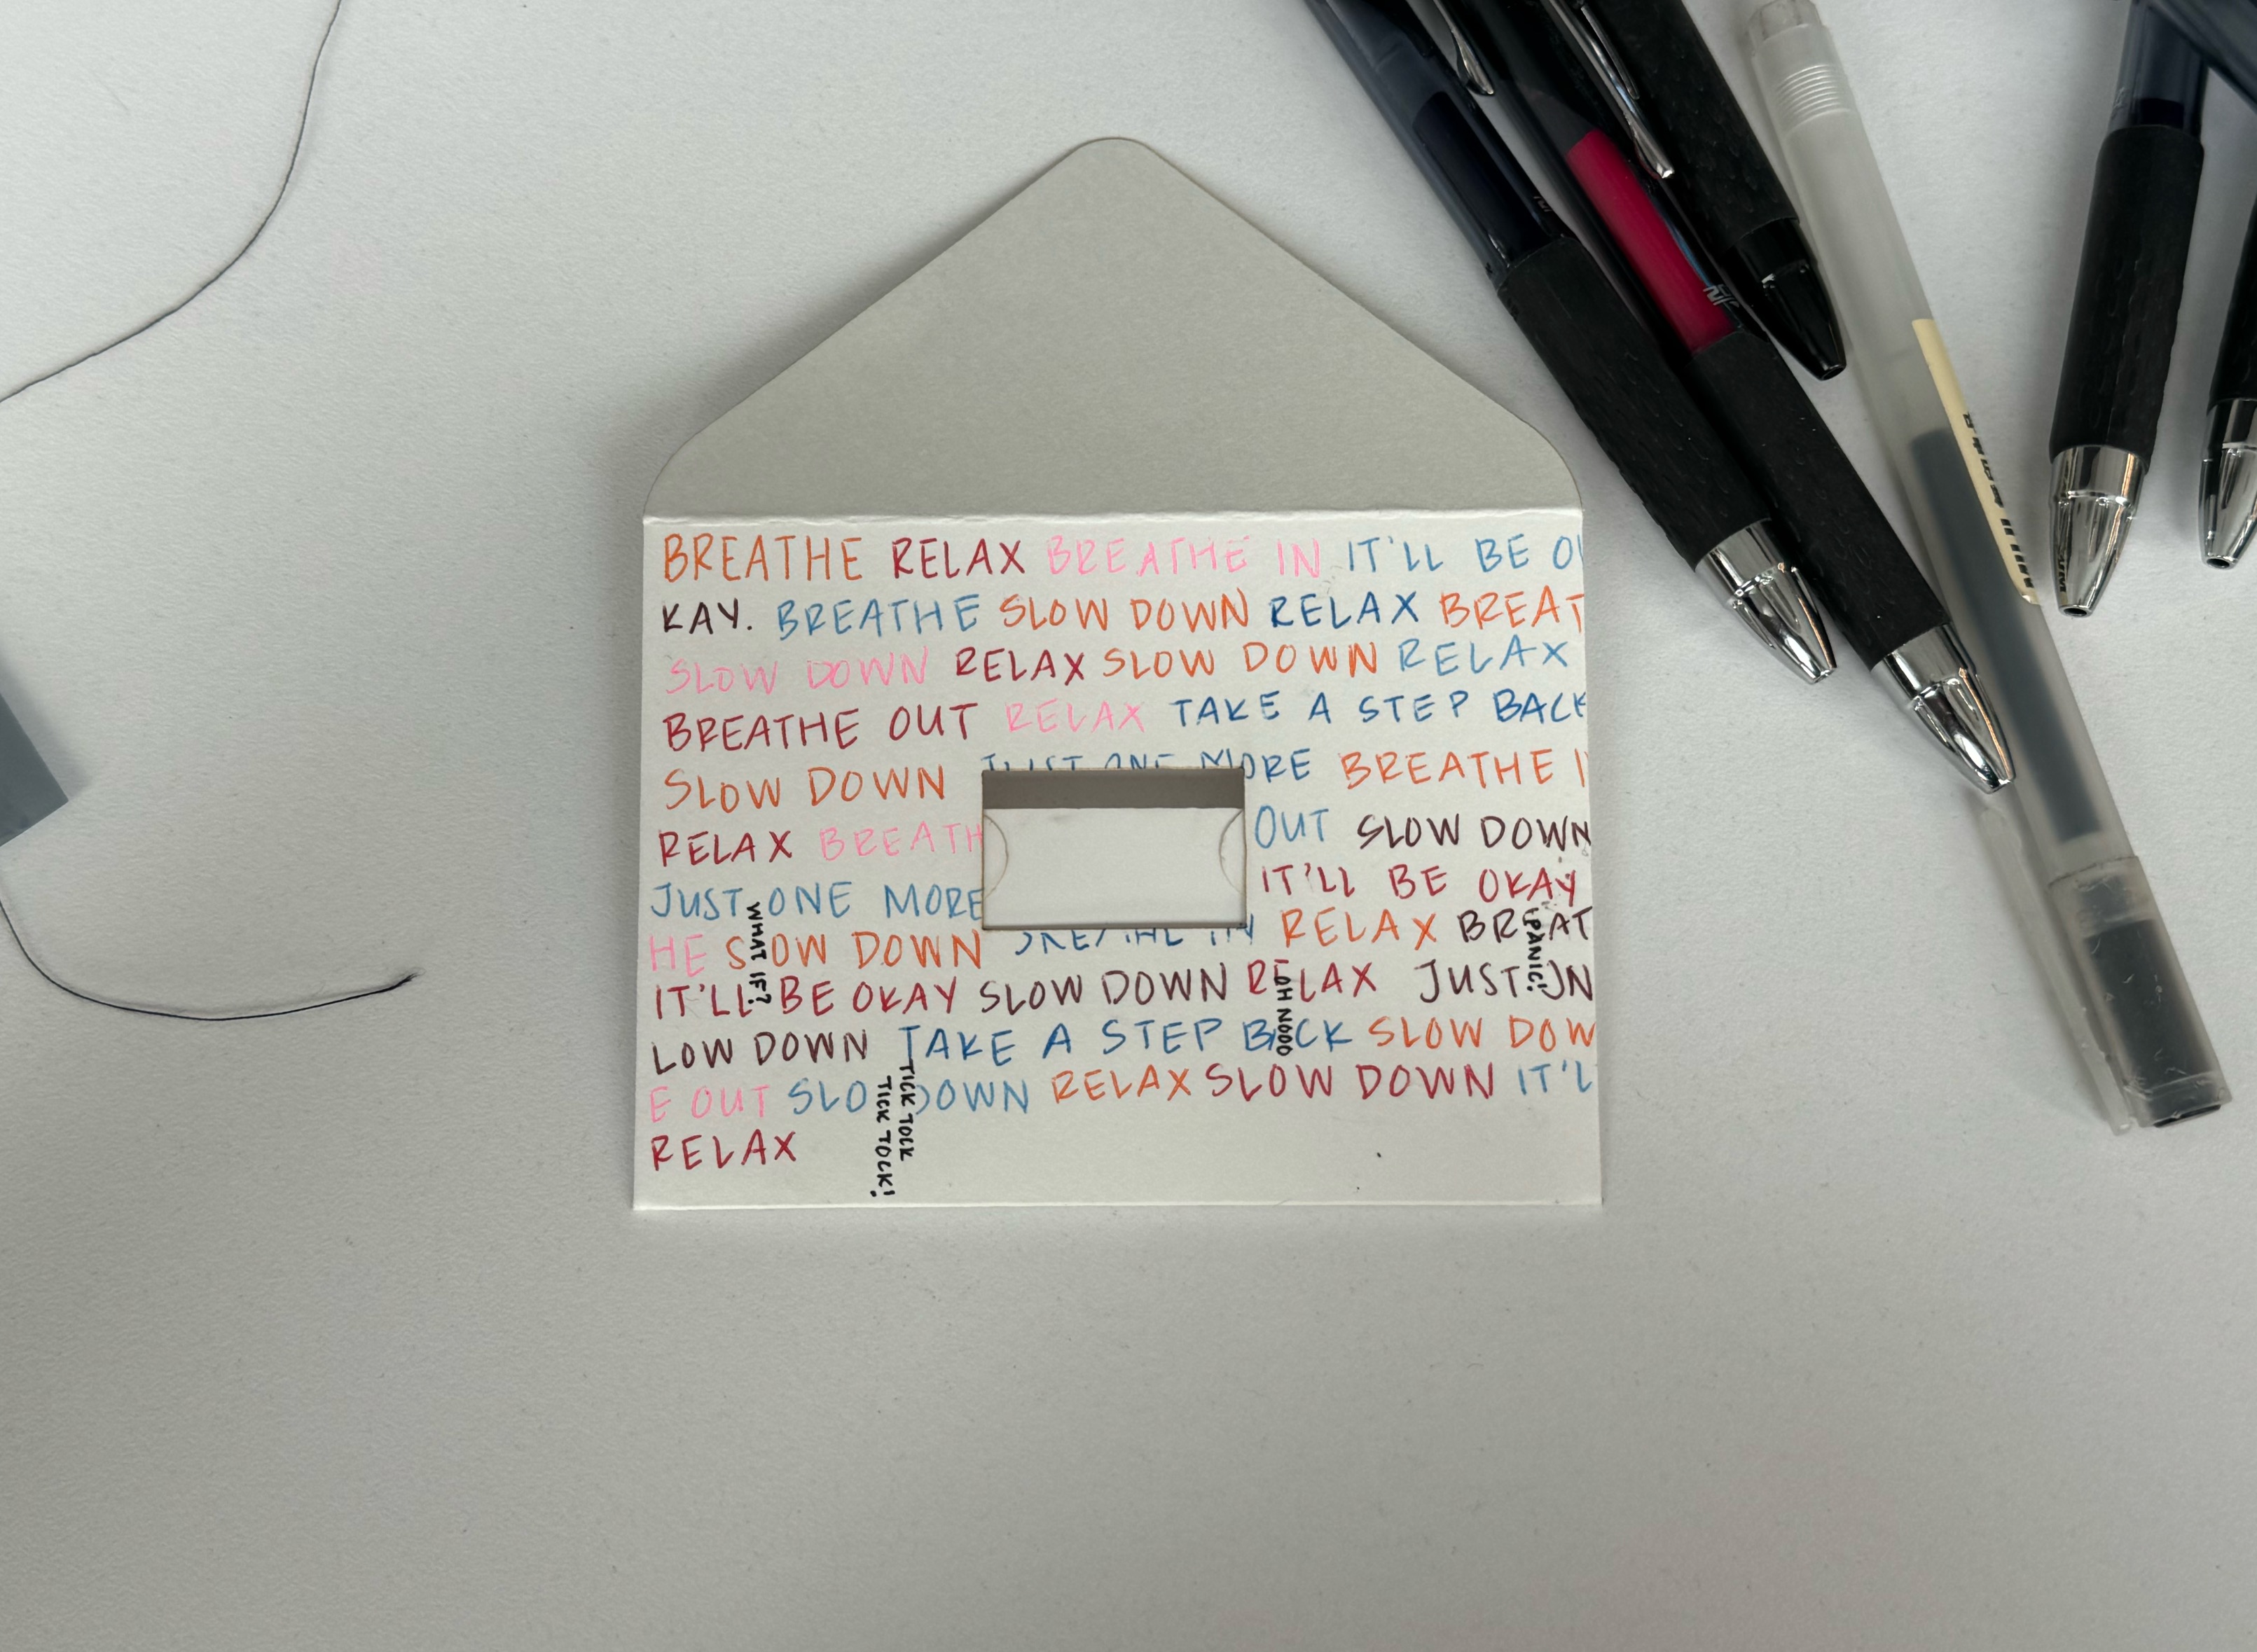 BREATHE RELAX BREATHE IN IT'LL BE O
KAY. BREATHE SLOW DOWN RELAX BREAT
SLOW DOWN RELAX SLOW DOWN RELAX
BREATHE OUT RELAX TAKE A STEP BACK
SLOW DOWN JUST ONE MORE BREATHE I
RELAX BREATH OUT SLOW DOWN
JUST ONE MORE IT'LL BE OKAY
HE SLOW DOWN BREATHE IN RELAX BREAT
IT'LL BE OKAY SLOW DOWN RELAX JUST ON
LOW DOWN TAKE A STEP BACK SLOW DOW
E OUT SLOW DOWN RELAX SLOW DOWN IT'L
RELAX
WHAT IF?
TICK TOCK
TICK TOCK!
OH NOOO
PANIC!